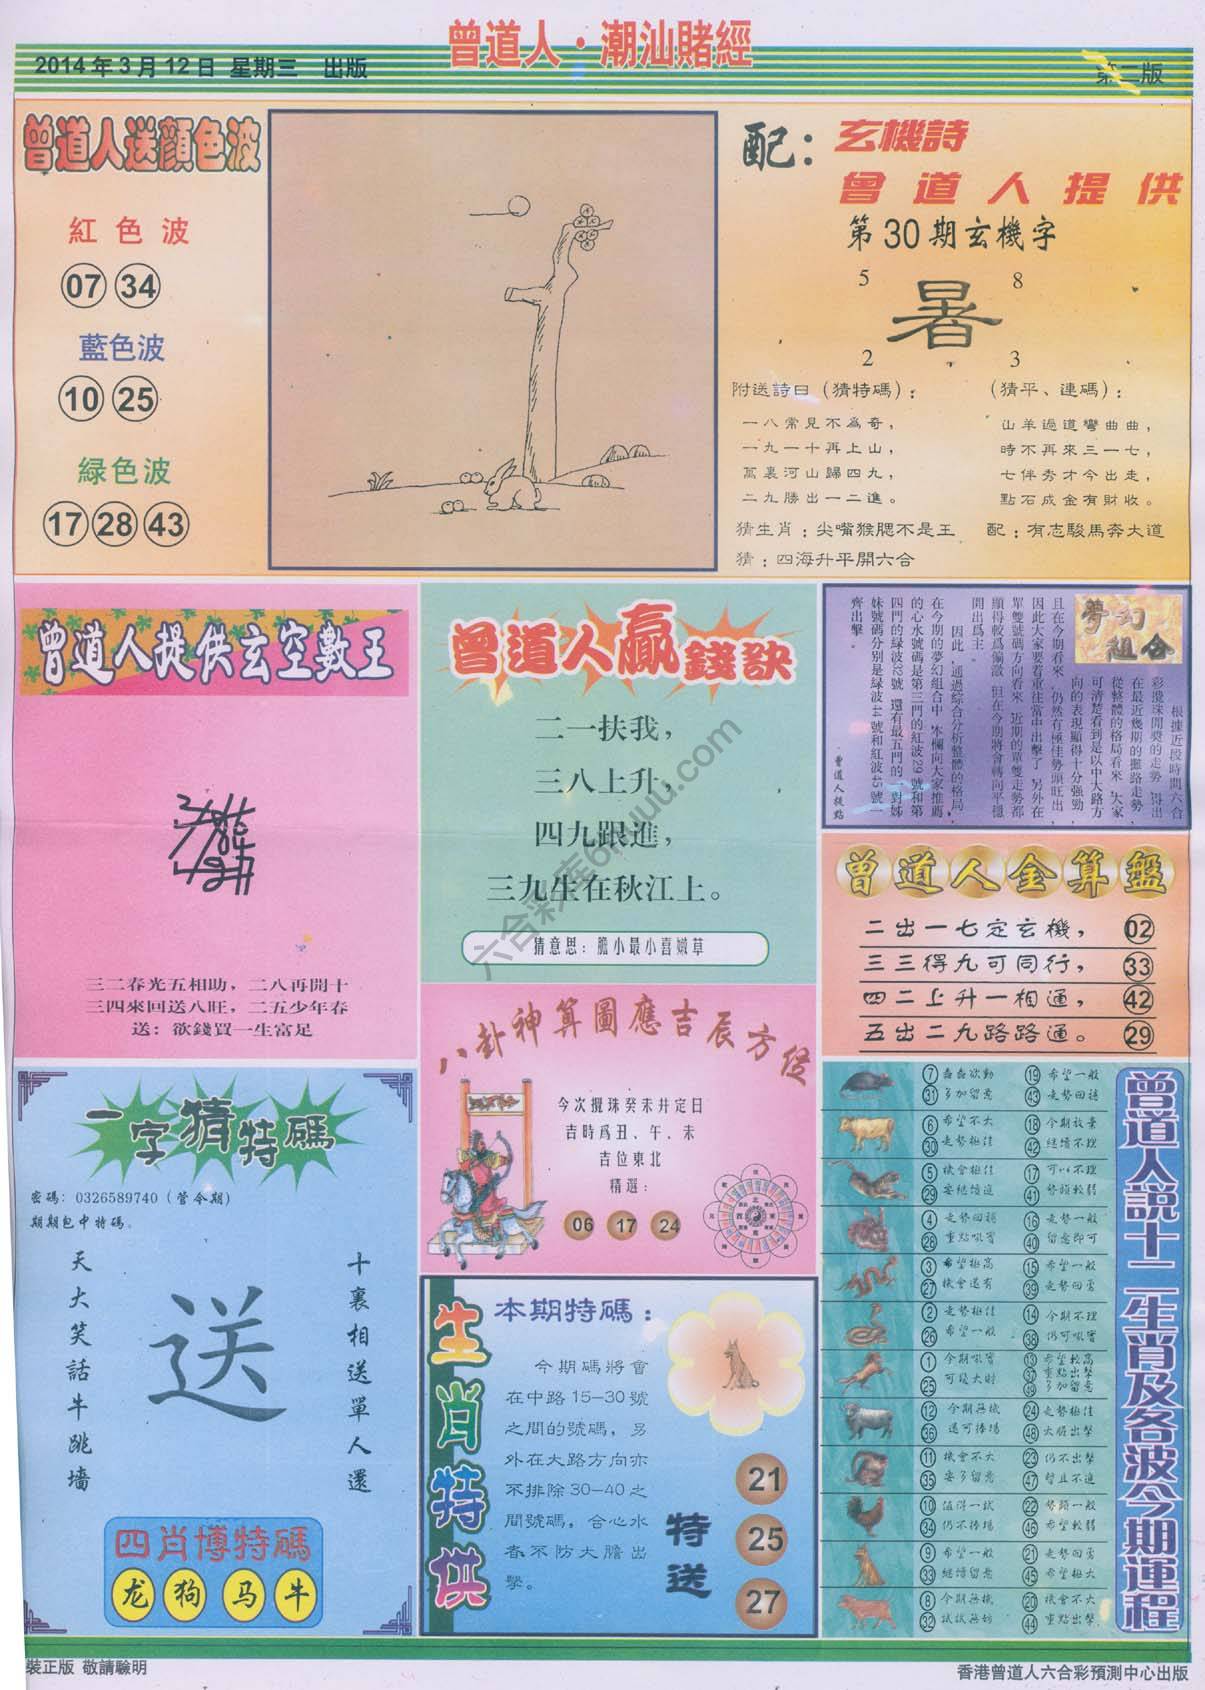 曾道人·潮汕賭經
2014年3月12日 星期三 出版
第二版
曾道人送顔色波
紅色波
07 34
藍色波
10 25
緑色波
17 28 43
配：
玄機詩
曾道人提供
第30期玄機字
5 8
暑
2 3
附送詩曰（猜特碼）：
一八常見不爲奇，
一九一十再上山，
萬裏河山歸四九，
二九勝出一二進。
（猜平、連碼）：
山羊過道彎曲曲，
時不再來三一七，
七伴秀才今出走，
點石成金有財收。
猜生肖：尖嘴猴腮不是王
配：有志駿馬奔大道
猜：四海升平開六合
曾道人提供玄空數王
三二春光五相助，二八再開十
三四來回送八旺，二五少年春
送：欲錢買一生富足
曾道人贏錢訣
二一扶我，
三八上升，
四九跟進，
三九生在秋江上。
猜意思：膽小最小喜嫩草
夢幻
組合
根據近段時間六合
彩攪珠開奬的走勢，得出
在最近幾期的攤路走勢，
從整體的格局看來，大家
可清楚看到是以中大路方
向的表現顯得十分强勁，
且在今期看來，仍然有極佳勢頭旺出，
因此大家要着重往當中出擊了，另外在
單雙號碼方向看來，近期的單雙走勢都
顯得較爲偏激，但在今期將會轉向平穩
開出爲主。
因此，通過綜合分析整體的格局，
在今期的夢幻組合中，本欄向大家推薦
的心水號碼是第三門的紅波29號和第
四門的緑波32號，還有最五門的一對姊
妹號碼分别是緑波44號和紅波45號一
齊出擊。
曾道人提點
曾道人金算盤
二出一七定玄機， 02
三三得九可同行， 33
四二上升一相通， 42
五出二九路路通。 29
八卦神算圖應吉辰方位
今次攪珠癸未井定日
吉時爲丑、午、未
吉位東北
精選：
06 17 24
一字猜特碼
密碼：0326589740（管今期）
期期包中特碼。
天大笑話牛跳墻
送
十裏相送單人還
四肖博特碼
龙 狗 马 牛
生肖特供
本期特碼：
今期碼將會
在中路15-30號
之間的號碼，另
外在大路方向亦
不排除30-40之
間號碼，合心水
者不防大膽出
擊。
特送
21
25
27
曾道人説十二生肖及各波今期運程
7 蠢蠢欲動 19 希望一般
31 多加留意 43 走勢回穩
6 希望不大 18 今期放棄
30 走勢極佳 42 繼續不理
5 機會極佳 17 可以不理
29 要繼續追 41 勢頭較弱
4 走勢回穩 16 走勢一般
28 重點吼實 40 留意即可
3 希望極高 15 希望一般
27 機會還有 39 走勢回勇
2 走勢極佳 14 今期不理
26 希望一般 38 仍可吼實
1 今期吼實 13 希望較高
25 可是大財 37 重點出擊
多加留意
12 今期無機 24 走勢極佳
36 還可捧場 48 大膽出擊
11 機會不大 23 仍不出擊
35 要多留意 47 暫且不追
10 值得一試 22 勢頭一般
34 仍不捧場 46 希望較弱
9 希望一般 21 走勢回勇
33 繼續留意 45 希望極大
8 今期無機 20 機會不大
32 試試無妨 44 重點出擊
六合彩库6huuu.com
裝正版 敬請驗明
香港曾道人六合彩預測中心出版